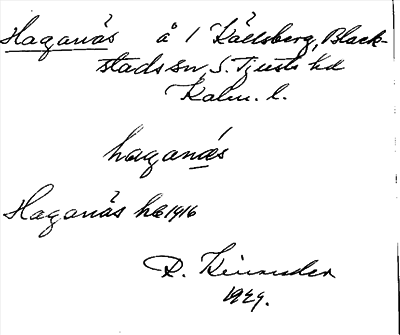 Haganäs å 1 Källsberg, Black-
stads sn, S. Tjusts hd
Kalm. l.
haganæs
Haganäs hc 1916
R. Kinander
1929.